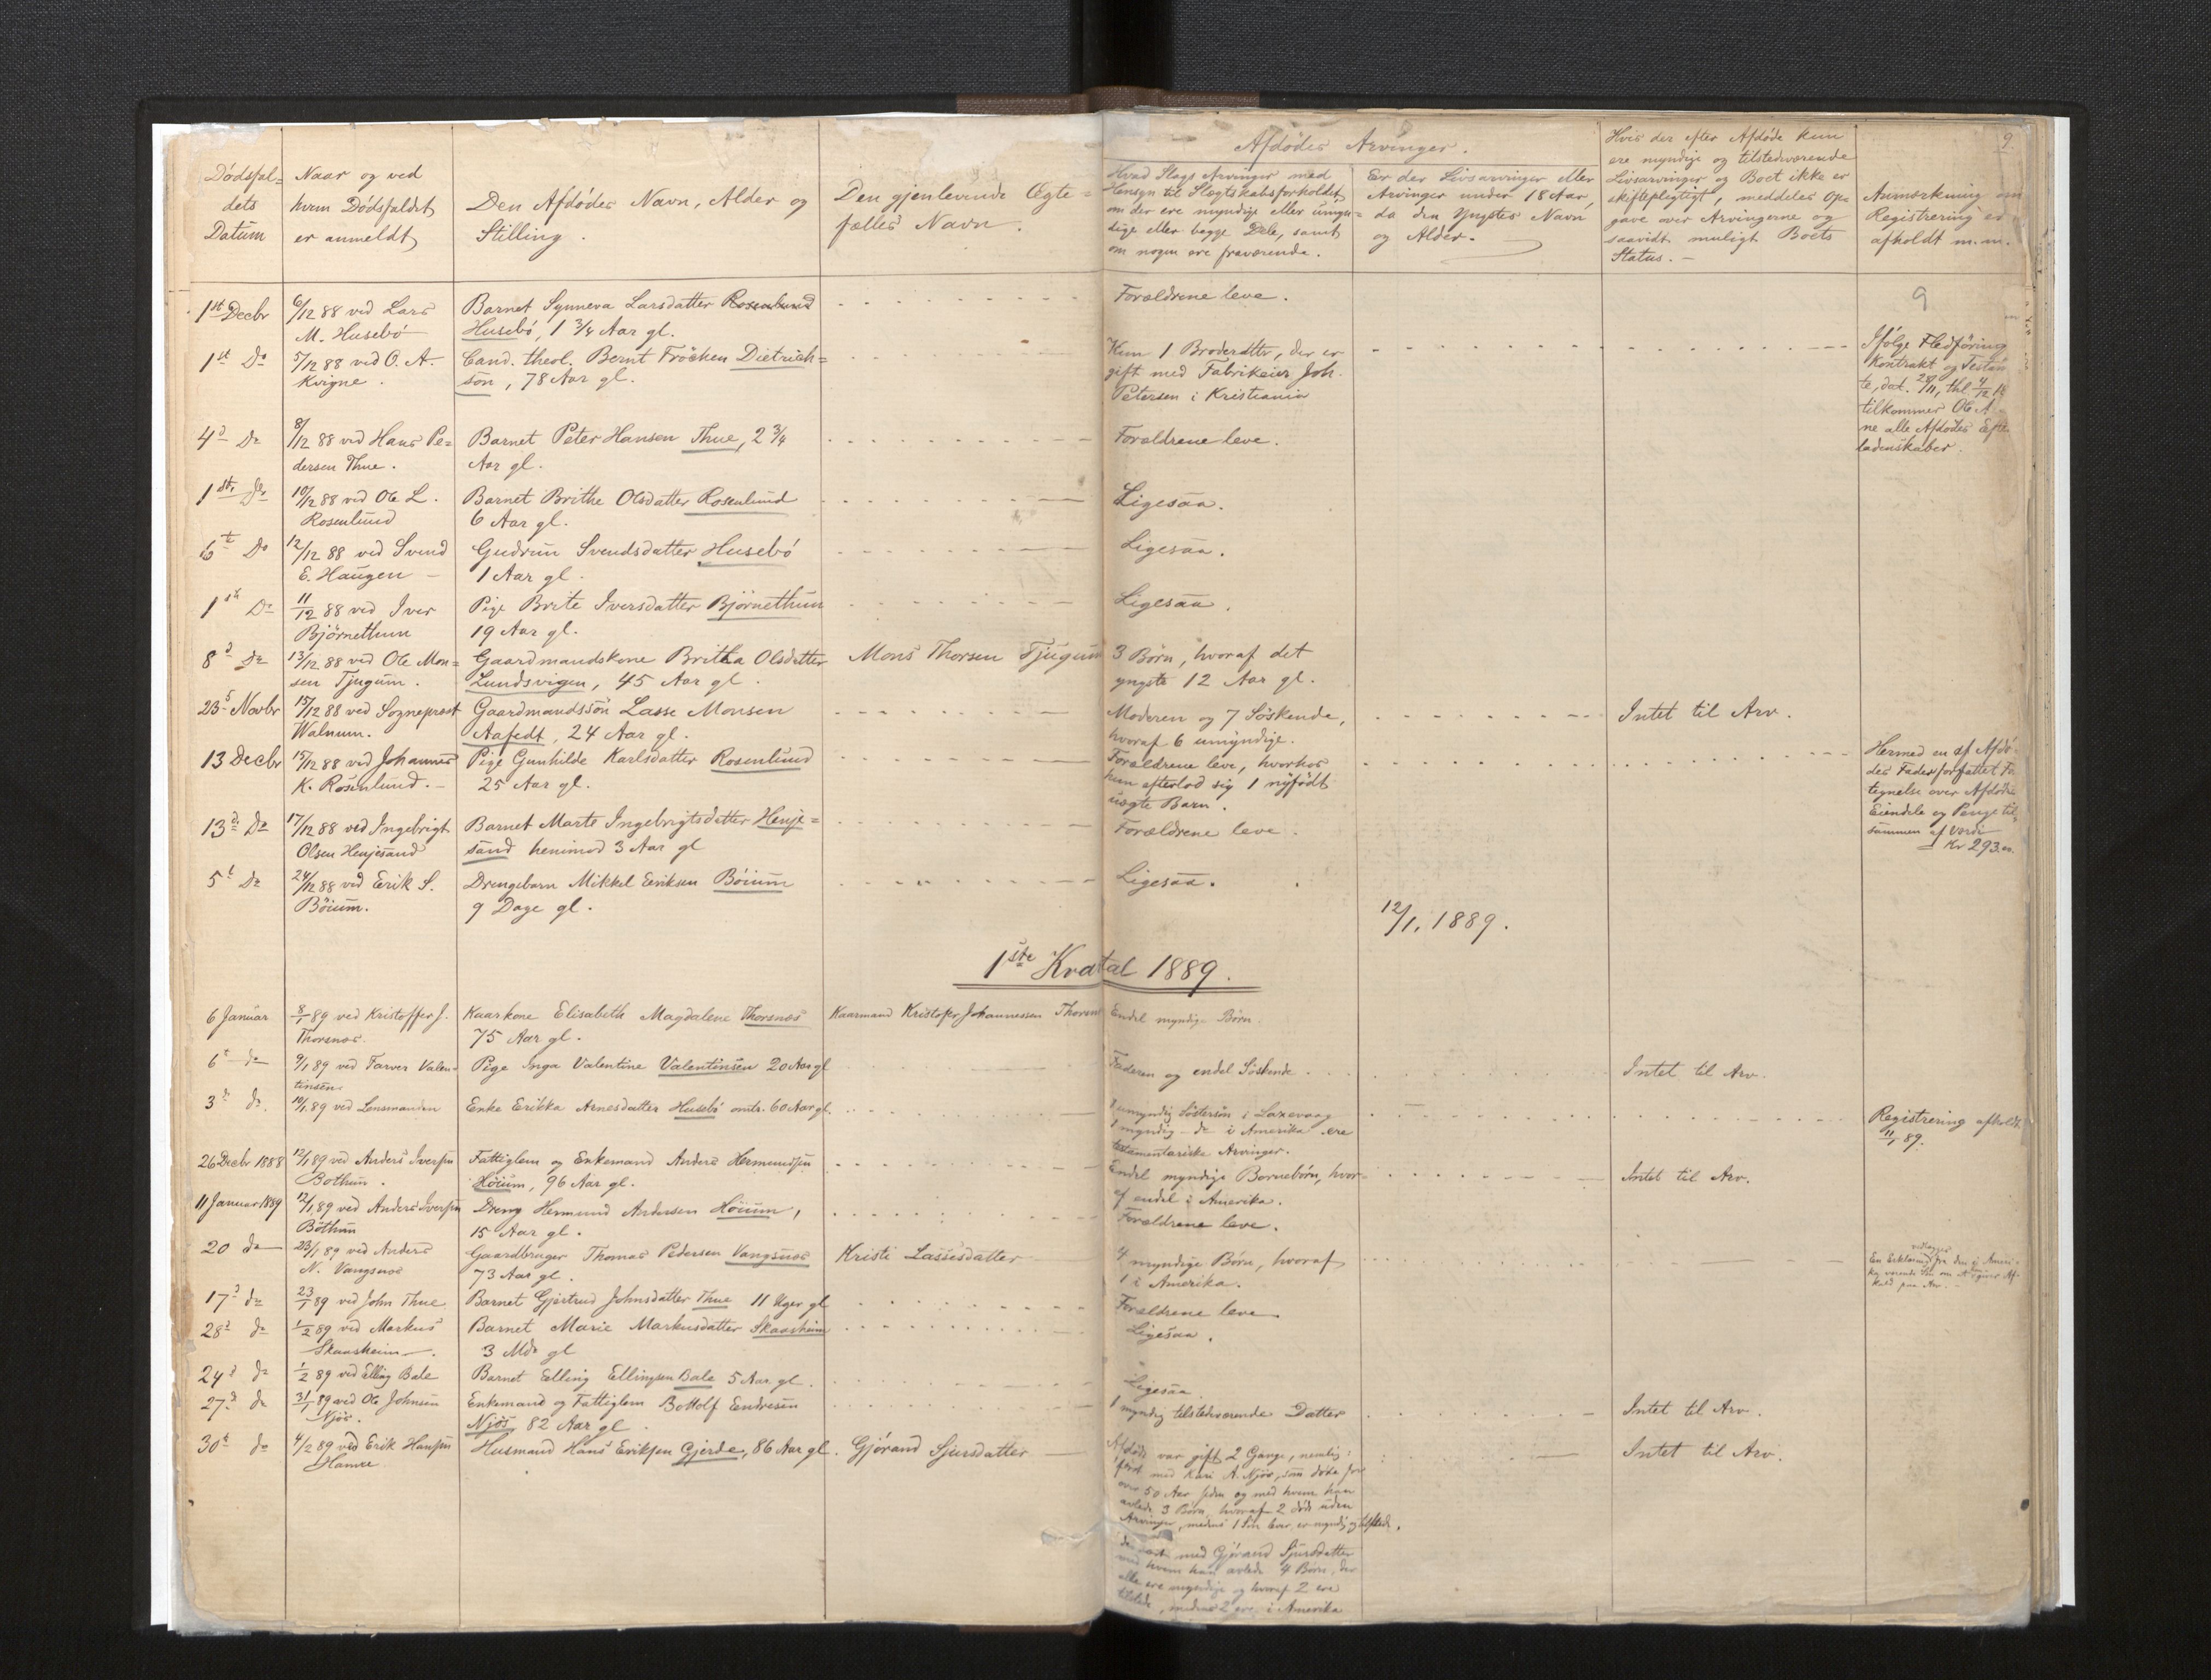 9.
Dödsfal=
dets
Datum
Naar og ved
hvem Dödsfaldet
er anmeldt
Den Afdödes Navn, Alder og
Stilling.
Den gjenlevende Ægte=
fælles Navn.
Afdödes Arvinger.
Hvad Slags Arvinger med
Hensyn til Slægtskabsforholdet,
om der ere myndige eller umyn-
dige eller begge Dele, samt
om nogen ere fraværende.
Er der Livsarvinger eller
Arvinger under 18 Aar,
da den Yngstes Navn
og Alder.
Hvis der efter Afdöde kun
ere myndige og tilstedeværende
Livsarvinger og Boet ikke er
skiftepligtigt, meddeles Op-
gave over Arvingerne og
saavidt muligt Boets
Status.
Anmærkning om
Registrering er
afholdt m.m.
9
1st Decbr
6/12 88 ved Lars
M. Husebö
Barnet Synneva Larsdatter Rosenlund
Husebö, 1 3/4 Aar gl.
Forældrene leve.
1st Do
5/12 88 ved O. A.
Kvigne.
Cand. theol. Bernt Fröchen Dietrich=
son, 78 Aar gl.
Kun 1 Broderdatter, der er
gift med Fabrikeier Joh.
Petersen i Kristiania
Ifölge Fledföring
Kontrakt og Testam
te, dat. 28/11, thl 4/12
tilkommer Ole A
ne alle Afdödes Efte
ladenskaber.
4d Do
8/12 88 ved Hans Pe=
dersen Thue.
Barnet Peter Hansen Thue, 2 3/4
Aar gl.
Forældrene leve.
1st Do
10/12 88 ved Ole L.
Rosenlund
Barnet Brithe Olsdatter Rosenlund
6 Aar gl.
Ligesaa.
6te Do
12/12 88 ved Svend
E. Haugen
Gudrun Svendsdatter Husebö
1 Aar gl.
Ligesaa.
1st Do
11/12 88 ved Iver
Björnethun
Pige Brite Iversdatter Björnethun
19 Aar gl.
Ligesaa.
8d Do
13/12 88 ved Ole Mon=
sen Tjugum.
Gaardmandskone Britha Olsdatter
Lundsvigen, 45 Aar gl.
Mons Thorsen Tjugum
3 Börn, hvoraf det
yngste 12 Aar gl.
23 Novbr
15/12 88 ved Sogneprest
Walnum.
Gaardmandssön Lasse Monsen
Aafedt, 24 Aar gl.
Moderen og 7 Söskende,
hvoraf 6 umyndige.
Intet til Arv.
13 Decbr
15/12 88 ved Johannes
K. Rosenlund.
Pige Gunhilde Karlsdatter Rosenlund
25 Aar gl.
Forældrene leve, hvorhos
hun efterlod sig 1 nyfödt
uægte Barn.
Hermed en af Afdö-
des Fader forfattet Fo
tegnelse over Afdödes
Eiendele og Penge til
sammen af Værdi
Kr 293.
13d Do
17/12 88 ved Ingebrigt
Olsen Henjesand
Barnet Marte Ingebrigtsdatter Henje=
sand henimod 3 Aar gl
Forældrene leve.
5t Do
24/12 88 ved Erik S.
Böium.
Drengebarn Mikkel Eriksen Böium
9 Dage gl.
Ligesaa.
12/1, 1889.
1ste Kvartal 1889.
6 Januar
8/1 89 ved Kristoffer J.
Thorsnæs
Kaarkone Elisabeth Magdalene Thorsnæs
75 Aar gl.
Kaarmand Kristofer Johannessen Thorsnæs
Endel myndige Börn.
6t do
9/1 89 ved Farver Valen-
tinsen
Pige Inga Valentine Valentinsen 20 Aar gl
Faderen og endel Söskende
Intet til Arv.
3d do
10/1 89 ved Lensmanden
Enke Erikka Arnesdatter Husebö omtr. 60 Aar gl.
1 umyndig Söstersön i Laxevaag
1 myndig do i Amerika ere
testamentariske Arvinger.
Registrering afholdt
11/1 89.
26 Decbr 1888
12/1 89 ved Anders Iversen
Bothun.
Fattiglem og Enkemand Anders Hermundsen
Höium, 96 Aar gl.
Endel myndige Barnebörn, hvor-
af endel i Amerika.
Intet til Arv.
11 Januar 1889
12/1 89 ved Anders Iversen
Böthun
Dreng Hermund Andersen Höium,
15 Aar gl.
Forældrene leve.
20 do
23/1 89 ved Anders
N. Vangsnæs
Gaardbruger Thomas Pedersen Vangsnæs
73 Aar gl.
Kristi Lassesdatter
4 myndige Börn, hvoraf
1 i Amerika.
vedlægges
En Erklæring fra den i Ameri-
ka værende Sön om at give Af-
kald paa Arv.
17d do
23/1 89 ved John Thue
Barnet Gjertrud Johnsdatter Thue 11 Uger gl
Forældrene leve
28d do
1/2 89 ved Markus
Skaasheim.
Barnet Marie Markusdatter Skaasheim
3 Mdr gl
Ligesaa.
24d do
1/2 89 ved Elling Bale
Barnet Elling Ellingsen Bale 5 Aar gl.
Ligesaa
27d do
31/1 89 ved Ole Johnsen
Njös.
Enkemand og Fattiglem Bottolf Endresen
Njös, 82 Aar gl.
1 myndig tilstedeværende Datter
Intet til Arv.
30t do
4/2 89 ved Erik Hansen
Hamre
Husmand Hans Eriksen Gjerde, 86 Aar gl.
Gjörand Sjursdatter
Afdöde var gift 2 Gange, nemlig:
först med Kari A. Njös, som döde for
over 50 Aar siden og med hvem han
avlede 3 Börn, hvoraf 2 döde uden
Arvinger, medens 1 Sön lever, er myndig og tilstede.
med Gjörand Sjursdatter
med hvem han avlede 4 Börn, der
alle ere myndige og hvoraf 2 ere
tilstede, medens 2 ere i Amerika
Intet til Arv.